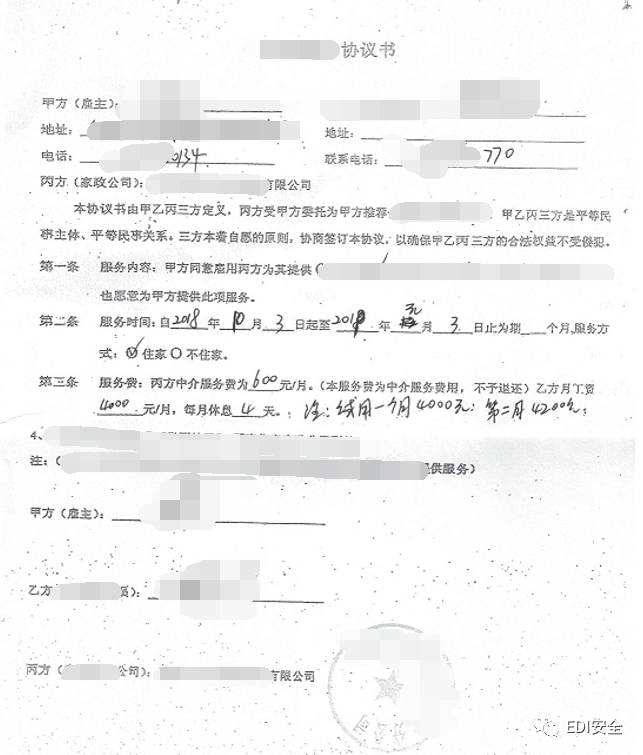 协议书
甲方（雇主）：
地址： 地址：
电话： 0134 联系电话： 770
丙方（家政公司）： 有限公司
本协议书由甲乙丙三方定义，丙方受甲方委托为甲方推荐 甲乙丙三方是平等民
事主体、平等民事关系。三方本着自愿的原则，协商签订本协议，以确保甲乙丙三方的合法权益不受侵犯。
第一条 服务内容：甲方同意雇用丙方为其提供（
也愿意为甲方提供此项服务。
第二条 服务时间：自2018年10月3日起至 年 月3日止为期 个月，服务方
式：☑住家○不住家。
第三条 服务费：丙方中介服务费为600元/月。（本服务费为中介服务费用，不予退还）乙方月工资
4000元/月，每月休息4天。注：续用一个月4000元；第二月4200元；
4、
注：（ 提供服务）
甲方（雇主）：
乙方 ）：
丙方（ 公司）： 有限公司
EDI安全